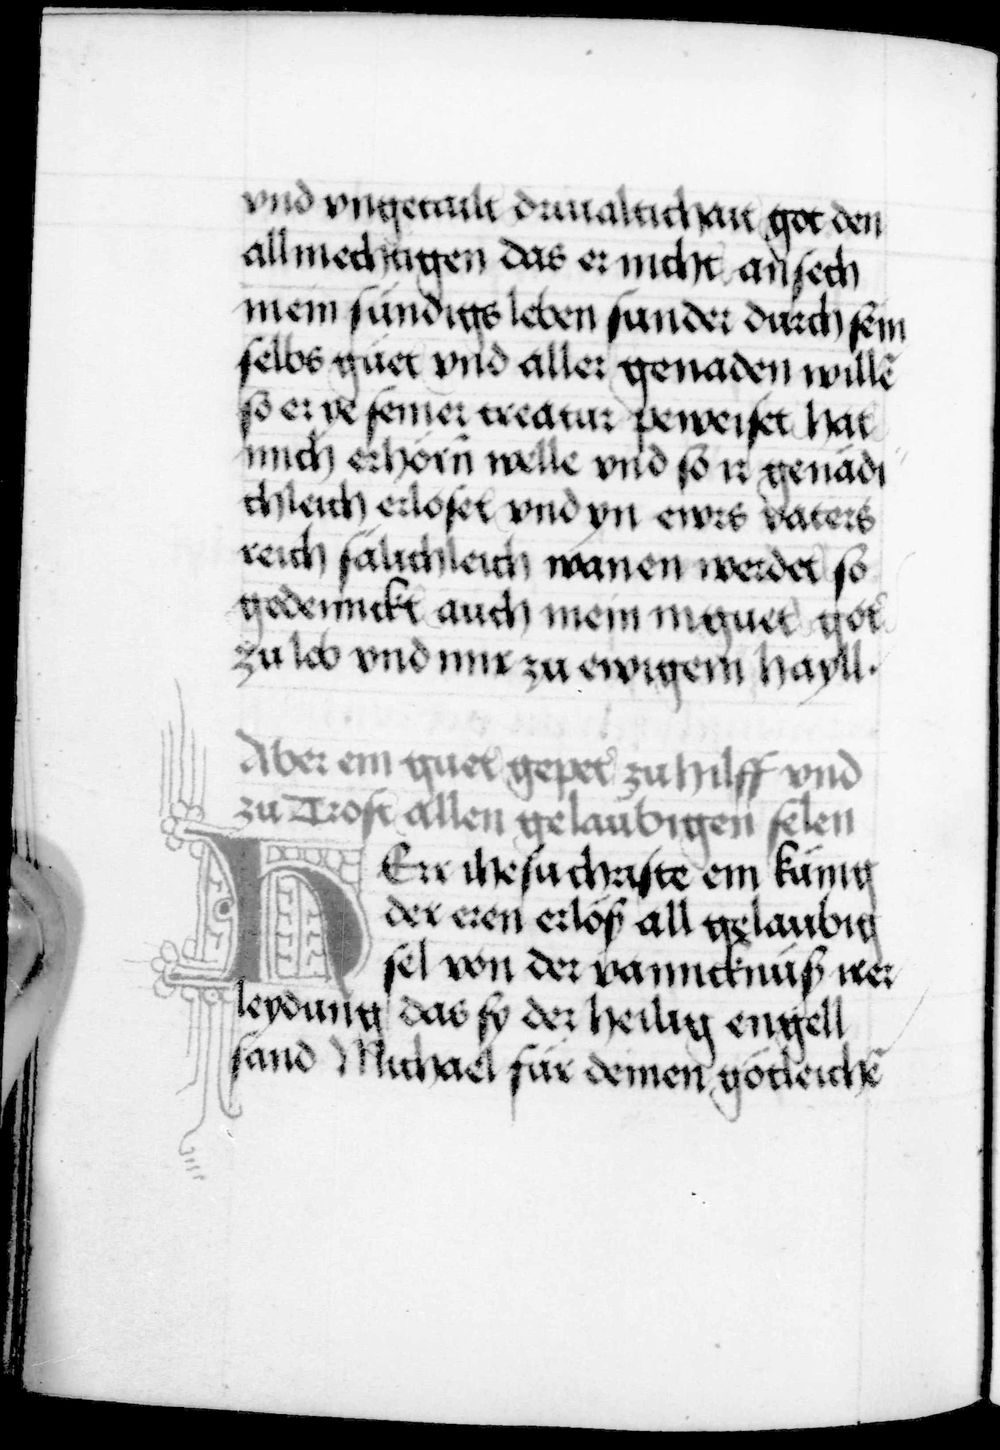 vnd vngetailt driualtichait got den
allmechtigen das er nicht ansech
mein sündigs leben sunder durch sein
selbs güet vnd aller genaden willē
so er ye seiner creatur peweiset hat
mich erhörn welle vnd so ir genädi
chleich erloset vnd yn ewrs vaters
reich sälichleich wanen werdet so
gedennckt auch mein in guet got
zu lob vnd mir zu ewigem hayll.
Aber ein guet gepet zu hilff vnd
zu Trost allen gelaubigen selen
HErr ihesu christe ein künig
der eren erlöß all gelaubig
sel von der vanncknüß wer
leydung das sy der heilig engell
sand Michael für deinen götleichē